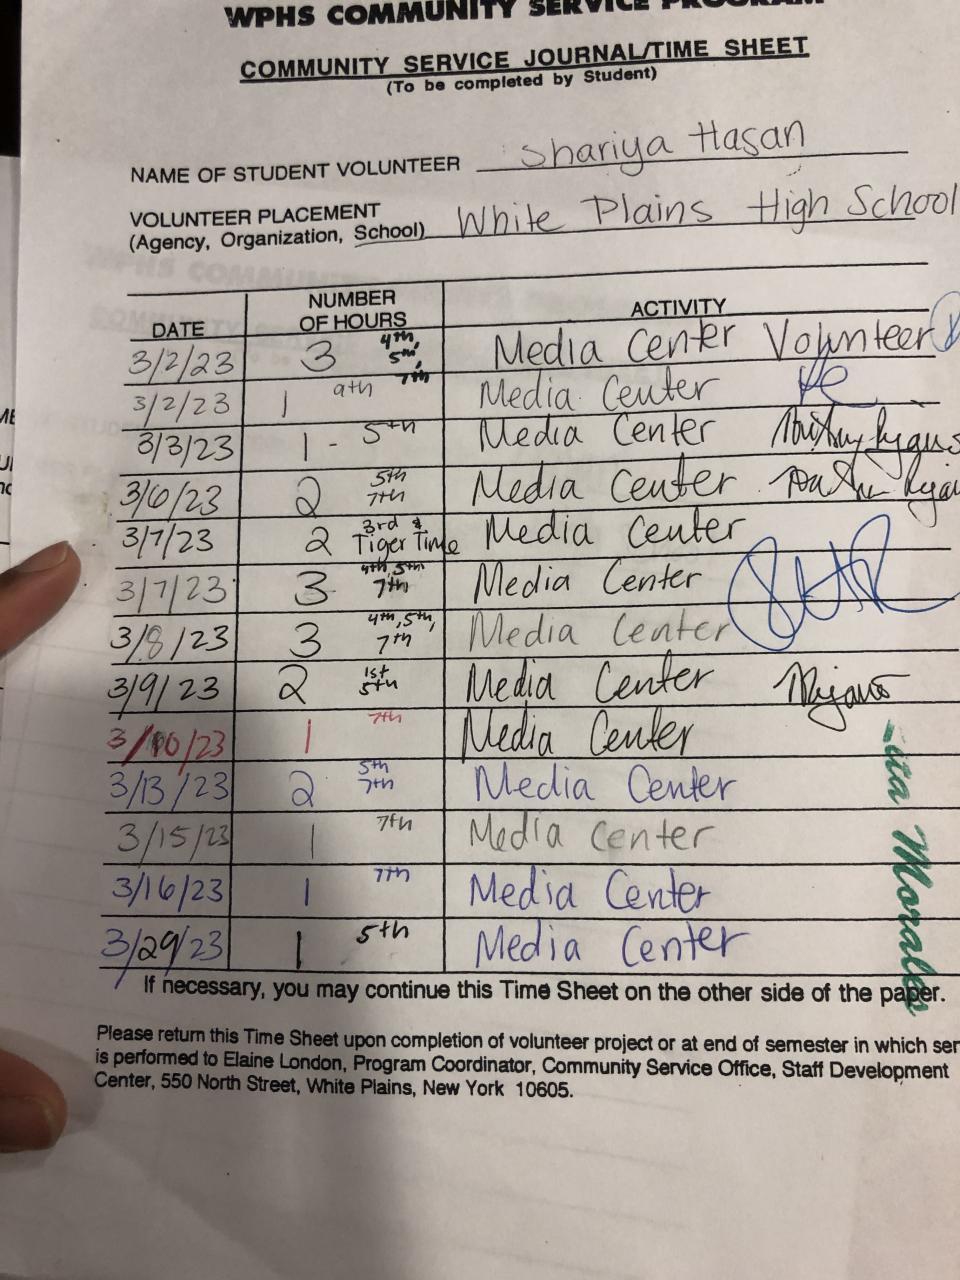 WPHS COMMUNITY SERVICE PROGRAM
COMMUNITY SERVICE JOURNAL/TIME SHEET
(To be completed by Student)
NAME OF STUDENT VOLUNTEER Shariya Hasan
VOLUNTEER PLACEMENT
(Agency, Organization, School) White Plains High School
DATE NUMBER OF HOURS ACTIVITY
3/2/23 3 4th, 5th, 7th Media Center Volunteer
3/2/23 1 9th Media Center
3/3/23 1 - 5th Media Center
3/6/23 2 5th 7th Media Center
3/7/23 2 3rd & Tiger Time Media Center
3/7/23 3 4th, 5th 7th Media Center
3/8/23 3 4th, 5th, 7th Media Center
3/9/23 2 1st 5th Media Center
3/10/23 1 7th Media Center
3/13/23 2 5th 7th Media Center
3/15/23 1 7th Media Center
3/16/23 1 7th Media Center
3/29/23 1 5th Media Center
Morales
If necessary, you may continue this Time Sheet on the other side of the paper.
Please return this Time Sheet upon completion of volunteer project or at end of semester in which ser
is performed to Elaine London, Program Coordinator, Community Service Office, Staff Development
Center, 550 North Street, White Plains, New York 10605.